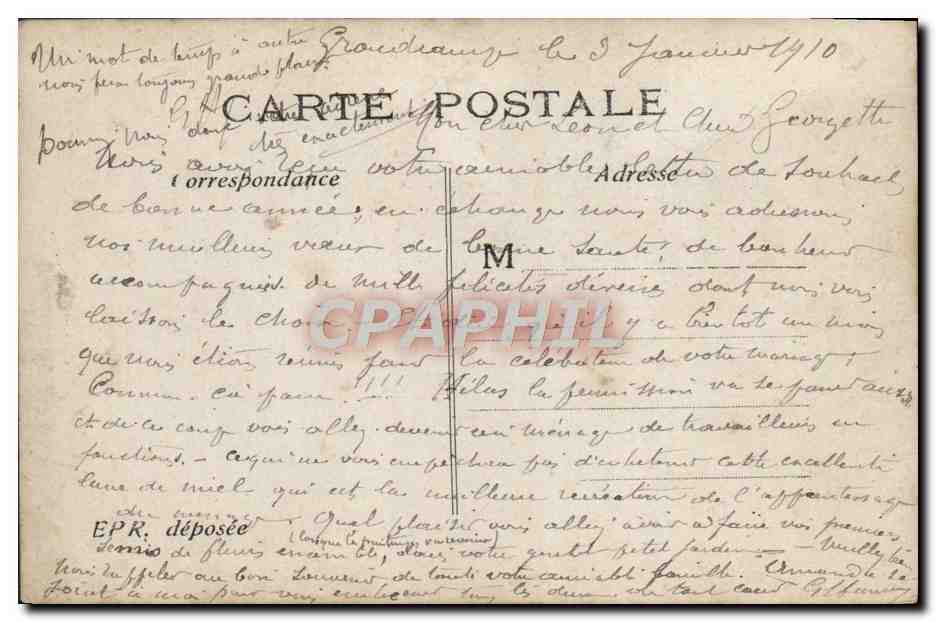 Un mot de temps à autre
nous fera toujours grande plaisir.
le 3 Janvier 1910
CARTE POSTALE
Mon cher Léon et Chère Georgette
donc
très exactement
Nous avons reçu votre aimable lettre de souhaits
Correspondance
Adresse
de bonne année, en échange nous vous adressons
nos meilleurs vœux de bonne santé, de bonheur
M
accompagnés de mille félicités diverses dont nous vous
laissons le choix. il y a bientôt un mois
CPAPHIL
que nous étions réunis pour la célébration de votre mariage,
Comme ça passe !!! Hélas la
et de ce coup vous allez devenir un ménage de travailleurs en
fonctions. - ce qui ne vous empêchera pas d'acheter cette excellente
lune de miel qui est la meilleure récréation de l'apprentissage
du ménage. Quel plaisir vous allez avoir à faire vos premiers
EPR. déposée
(lorsque le printemps
semis de fleurs ensemble, dans votre gentil petit jardin - Veuillez bien
nous rappeler au bon souvenir de toute votre aimable famille. Armandie se
joint à moi pour vous embrasser tous les deux de tout cœur